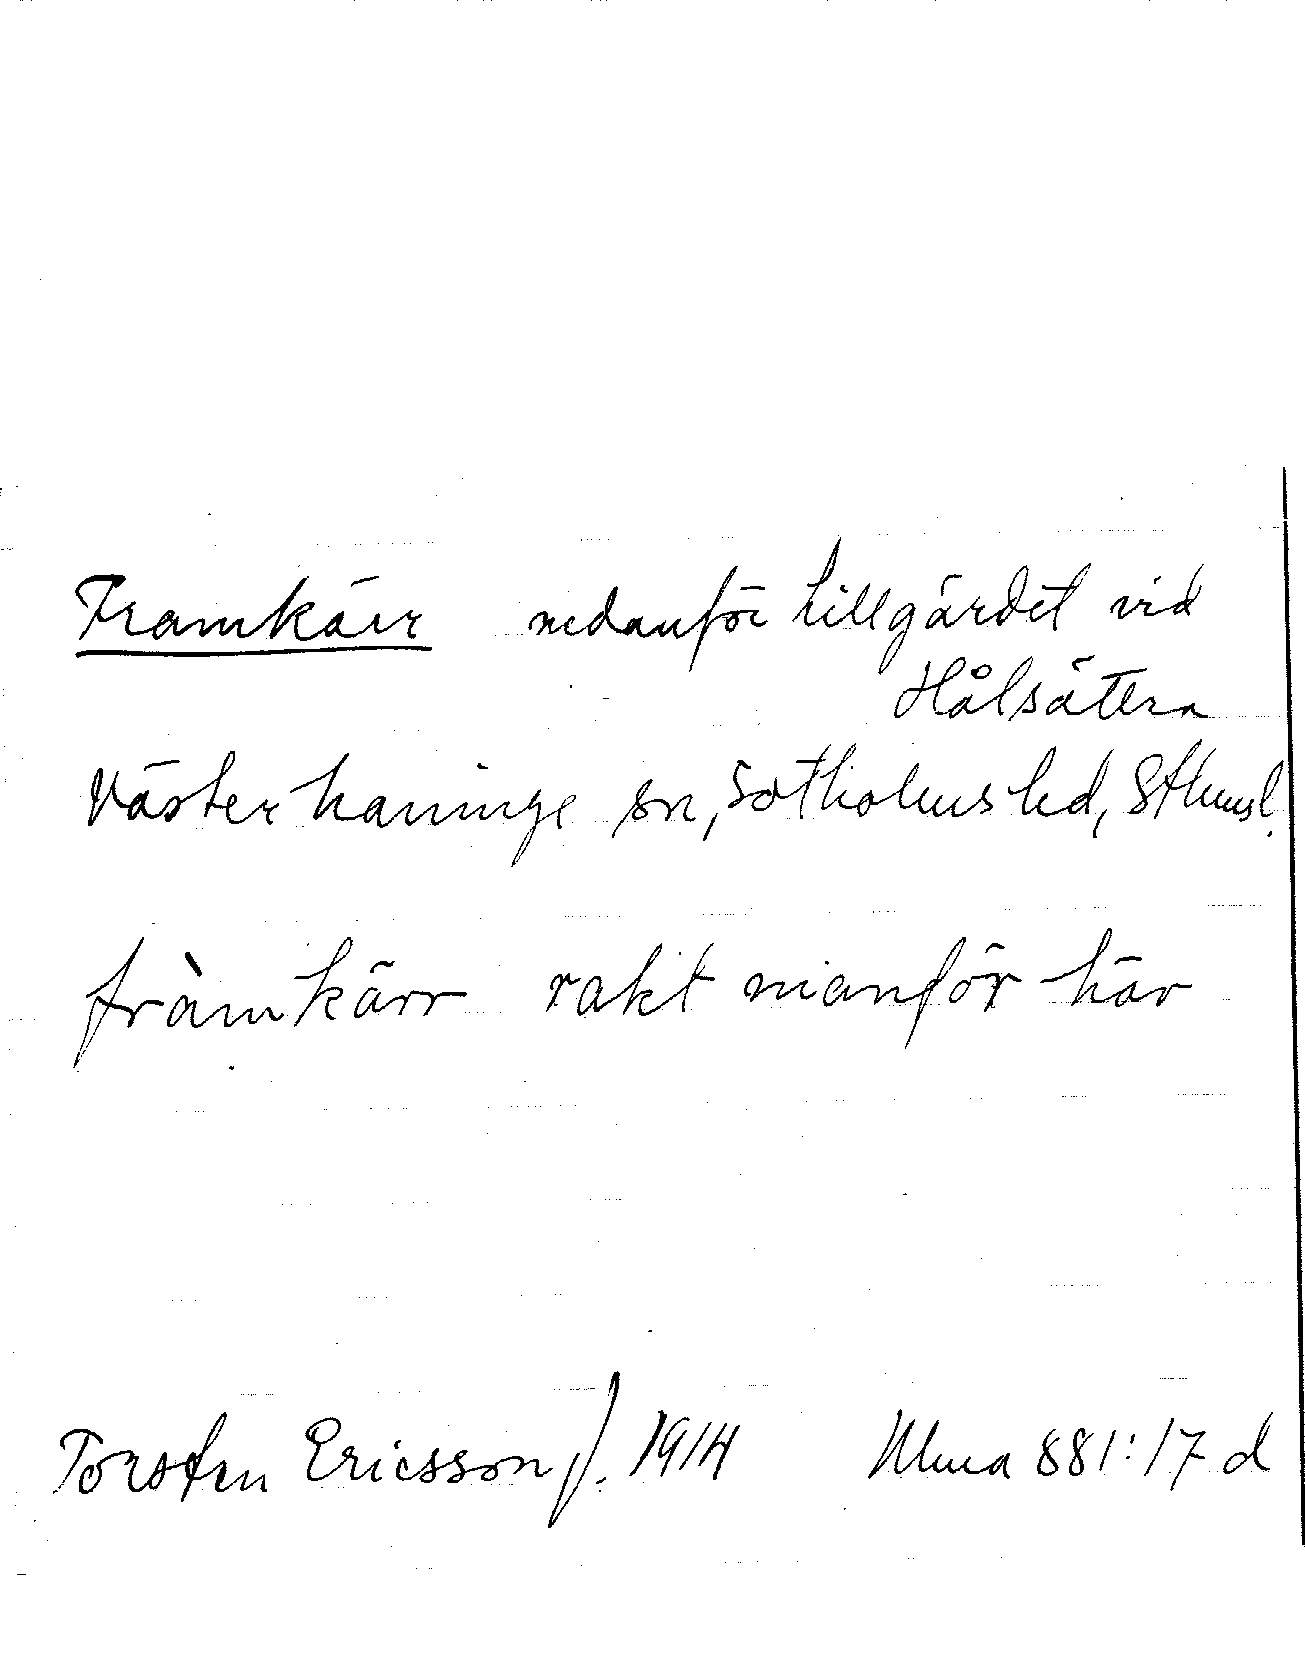 Framkärr nedanför lillgärdet vid
Hålsätera
Västerhaninge sn, Sotholms hd, Sthmsl.
fràmkärr rakt nianför här
Torsten Ericsson f. 1914 Ulma 881:17 d